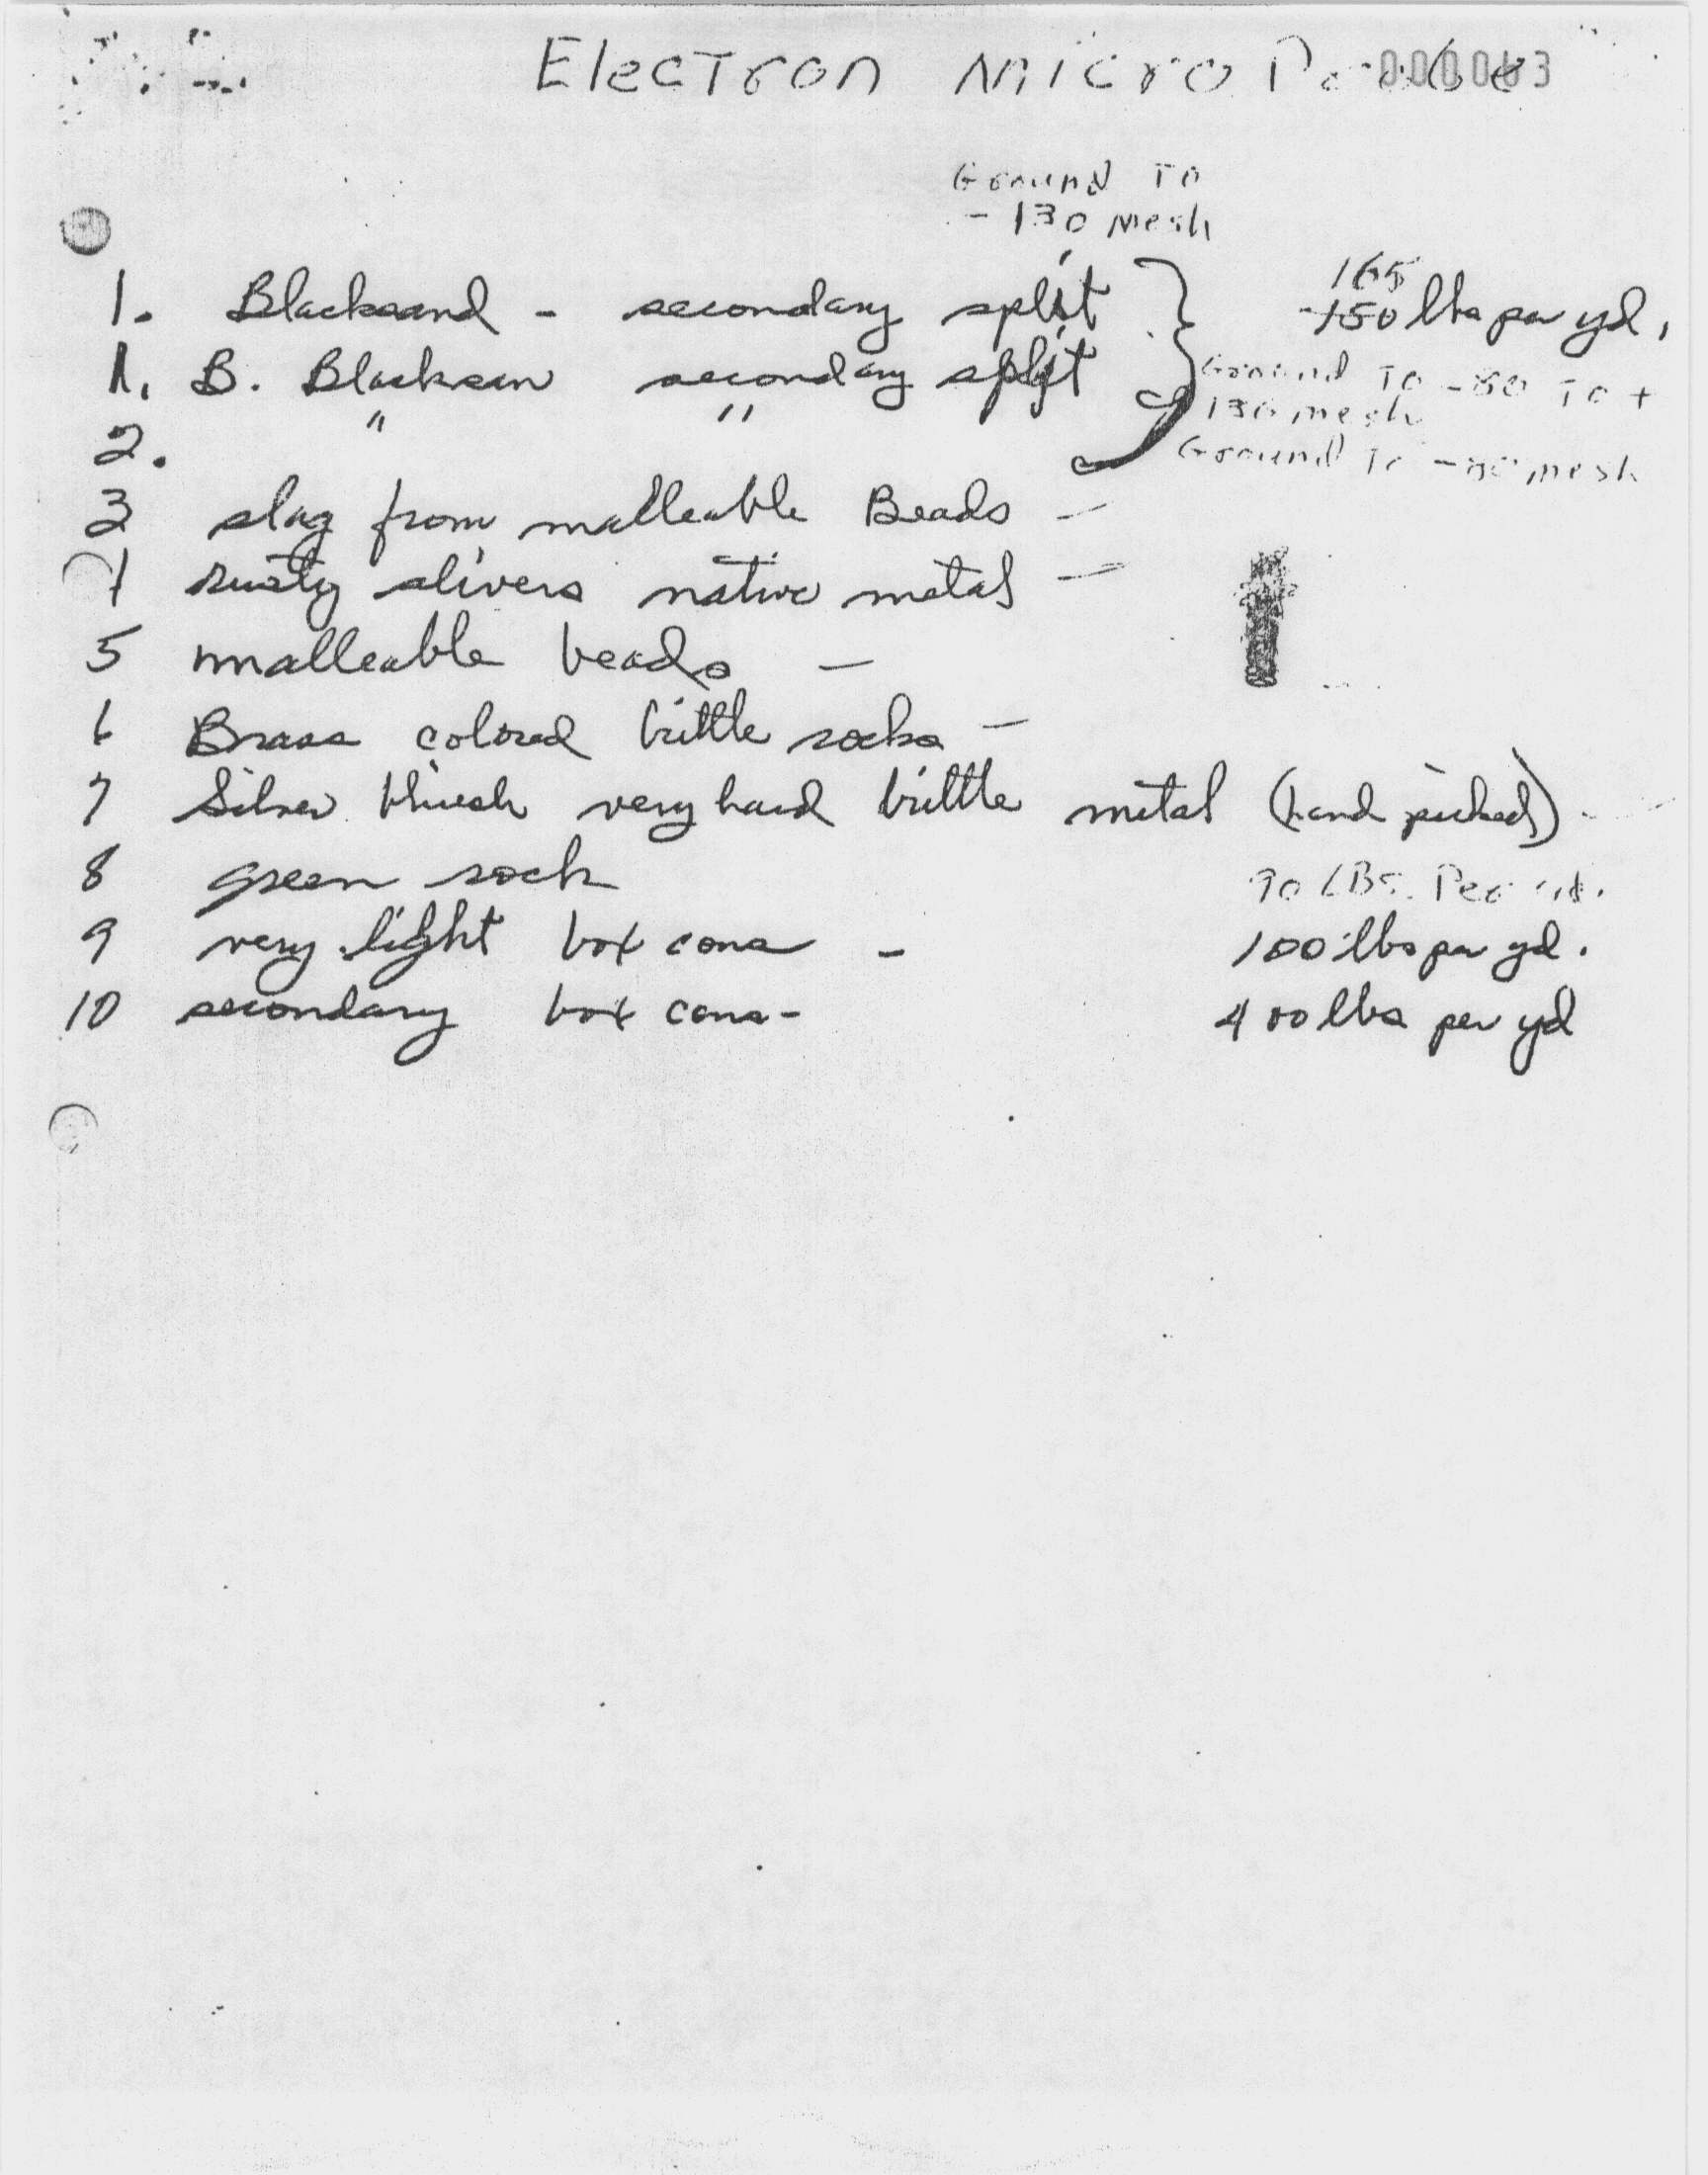 Electron Micro Probe
Ground To
- 130 mesh
1. Blacksand - secondary split
165
150 lbs per yd.
1. B. Blacksan secondary split
Ground To -80 To +
130 mesh
2. " "
Ground To -80 mesh
3 slag from malleable Beads -
rusty slivers native metal -
5 malleable beads -
6 Brass colored brittle rocks -
7 Silver bluish very hard brittle metal (hand picked) -
8 green rock
90 LBS. Per yd.
9 very light box cons - 100 lbs per yd.
10 secondary box cons - 400 lbs per yd